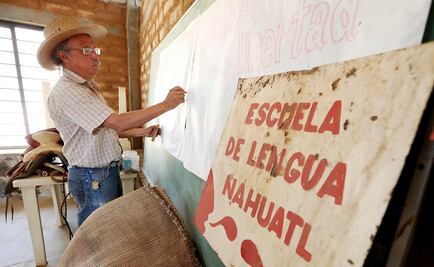 libertad
ESCUELA
DE LENGUA
NAHUATL